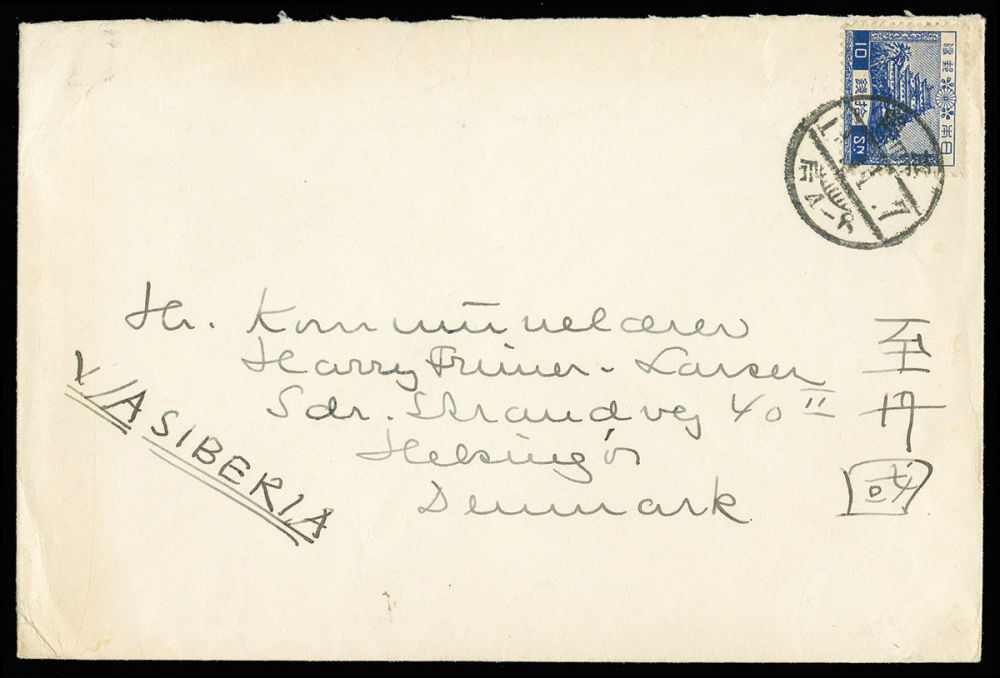 Hr. Kommunelærer
Harry Friner-Larsen
Sdr. Strandvej 40 II
Helsingör
Denmark
VIA SIBERIA
至
丹
國
大日本帝國郵便
10
拾銭
Sn